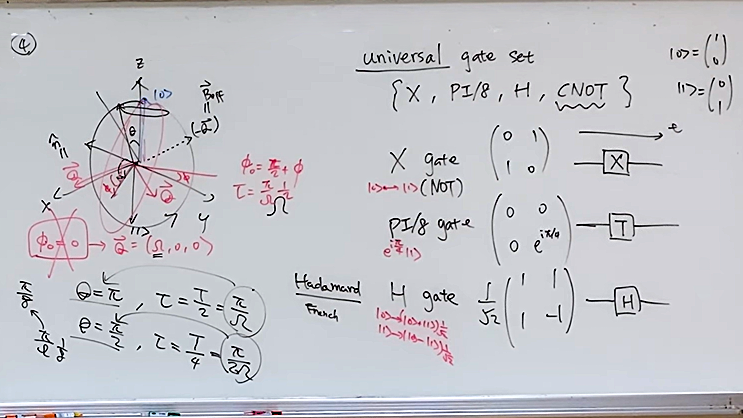 ④
Z
|0⟩
B⃗eff
||
(-Q⃗)
θ
n̂
||
Q⃗
Q⃗
X
y
|1⟩
ϕ₀ = π/2 + ϕ
τ = π/Ω 1/2
ϕ₀ = 0 → Q⃗ = (Ω, 0, 0)
θ = π , τ = T/2 = π/Ω
θ = π/2 , τ = T/4 = π/2Ω
π/8
universal gate set
{ X , PI/8 , H , CNOT }
|0⟩ = (1 0)
|1⟩ = (0 1)
t
X gate (0 1 1 0) X
|0⟩↔|1⟩ (NOT)
PI/8 gate (0 0 0 e^{iπ/4}) T
e^{iπ/4}|1⟩
Hadamard H gate 1/√2 (1 1 1 -1) H
French
|0⟩→(|0⟩+|1⟩)1/√2
|1⟩→(|0⟩-|1⟩)1/√2